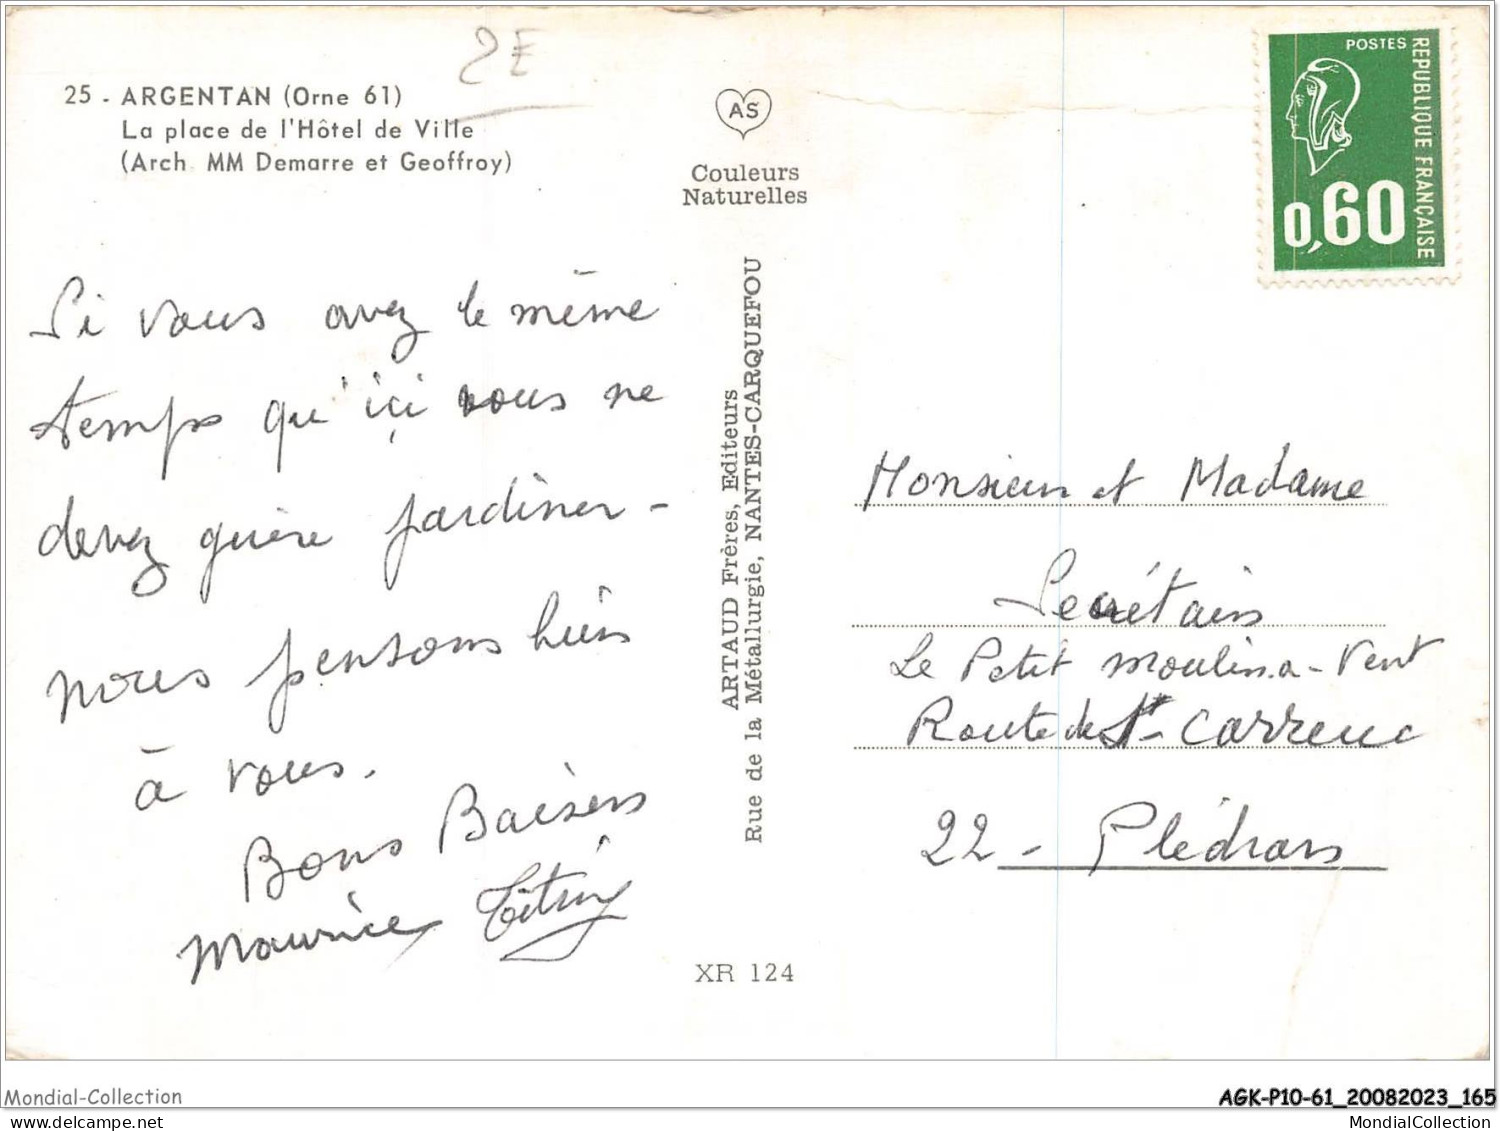 2E
25 - ARGENTAN (Orne 61)
La place de l'Hôtel de Ville
(Arch. MM Demarre et Geoffroy)
AS
Couleurs
Naturelles
POSTES
REPUBLIQUE FRANÇAISE
0,60
Si vous avez le même
temps qu'ici vous ne
devez guère jardiner -
nous pensons bien
à vous.
Bons Baisers
Maurice
ARTAUD Frères, Editeurs
Rue de la Métallurgie, NANTES-CARQUEFOU
XR 124
Monsieur et Madame
Secrétain
Le Petit Moulin-a-Vent
Route de St- Carreuc
22 - Plédran
Mondial-Collection
AGK-P10-61_20082023_165
https://www.delcampe.net
MondialCollection